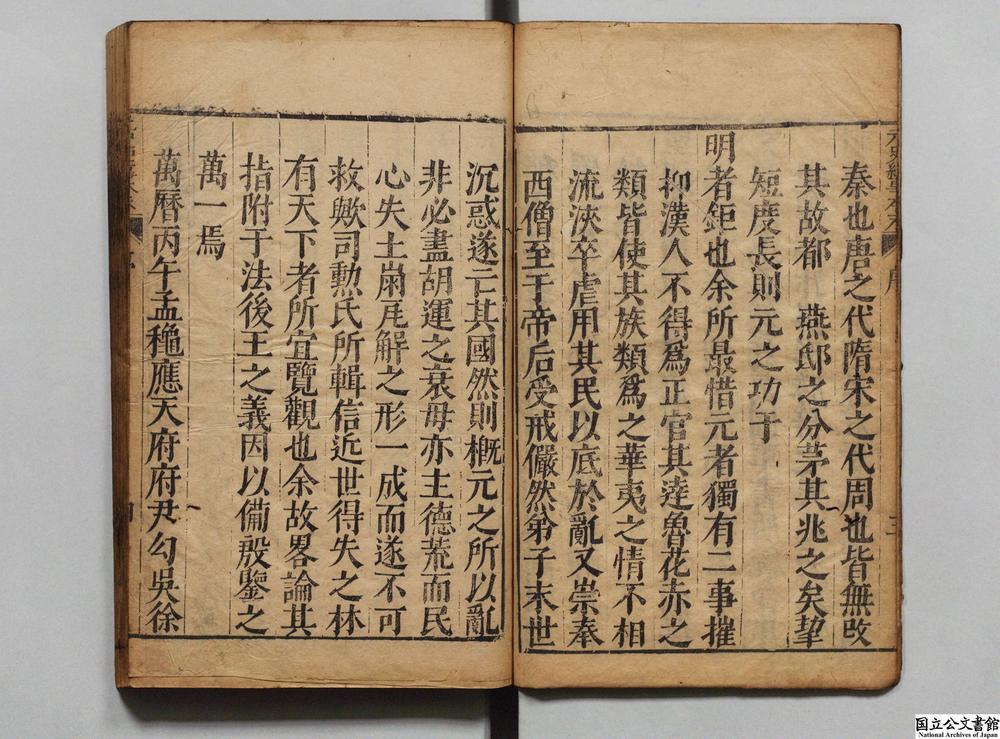 秦也唐之代隋宋之代周也皆無改
其故都 燕邸之分茅其兆之矣挈
短度長則元之功于
明者鉅也余所最惜元者獨有二事摧
抑漢人不得爲正官其逹魯花赤之
類皆使其族類爲之華夷之情不相
流浹卒虐用其民以底於亂又崇奉
西僧至于帝后受戒儼然弟子末世
沉惑遂亡其國然則槪元之所以亂
非必盡胡運之衰毋亦主德荒而民
心失土崩瓦解之形一成而遂不可
救歟司勲氏所輯信近世得失之林
有天下者所宜覽觀也余故畧論其
指附于法後王之義因以備殷鑒之
萬一焉
萬曆丙午孟穐應天府府尹勾吳徐
国立公文書館
National Archives of Japan